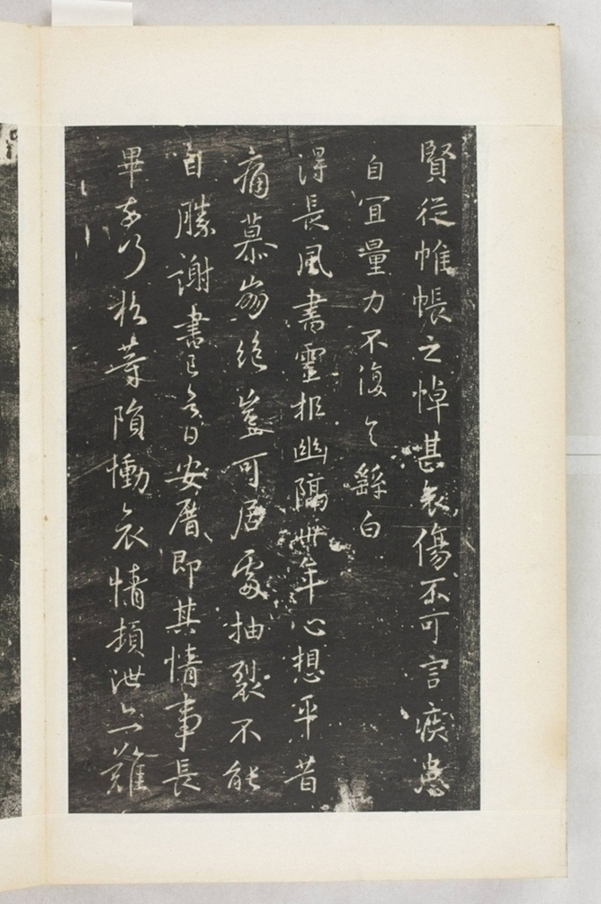 賢從帷帳之悼甚哀傷不可言疾患
自宜量力不復具繇白
得長風書靈柩幽隔卅年心想平昔
痛慕崩絕豈可居處抽裂不能
自勝謝書已令晉安厝即其情事長
畢奈何松等隕慟哀情頓泄亦難